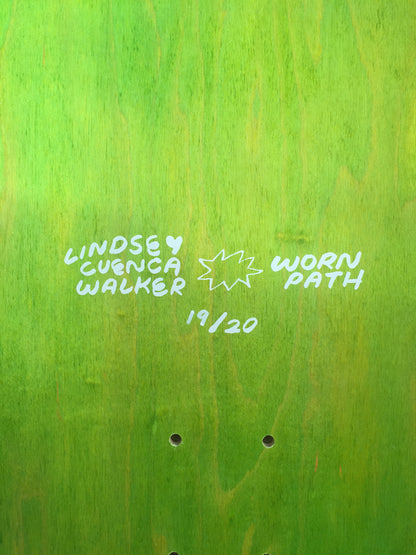 LINDSEY
CUENCA
WALKER
WORN
PATH
19/20